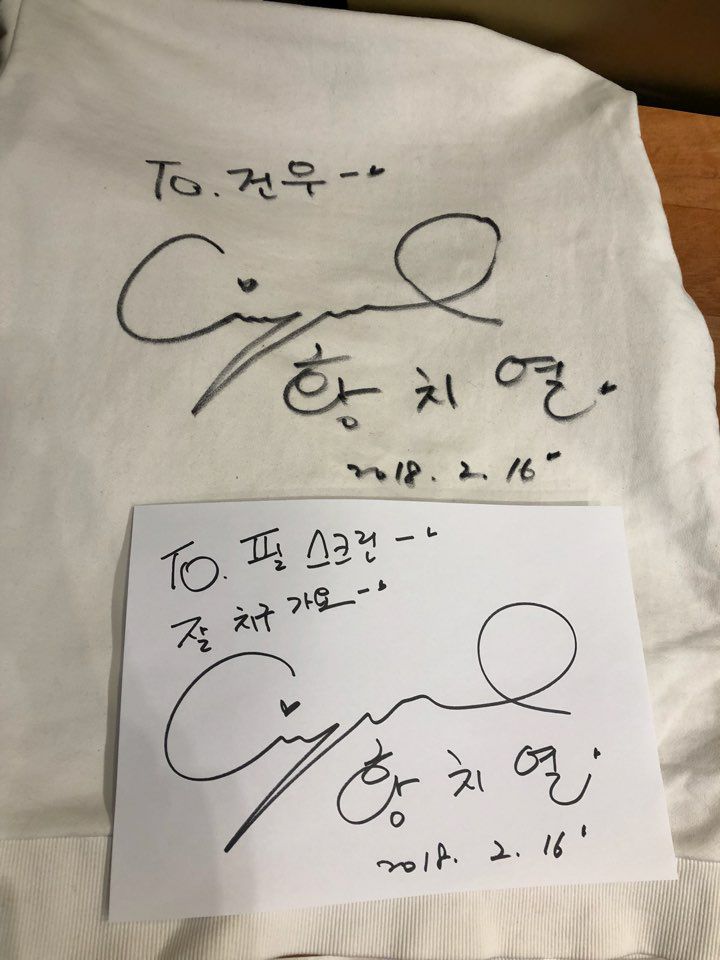 To. 건우~
황치열
2018. 2. 16
To. 필 스크린~
잘 치구 가요~
황치열
2018. 2. 16